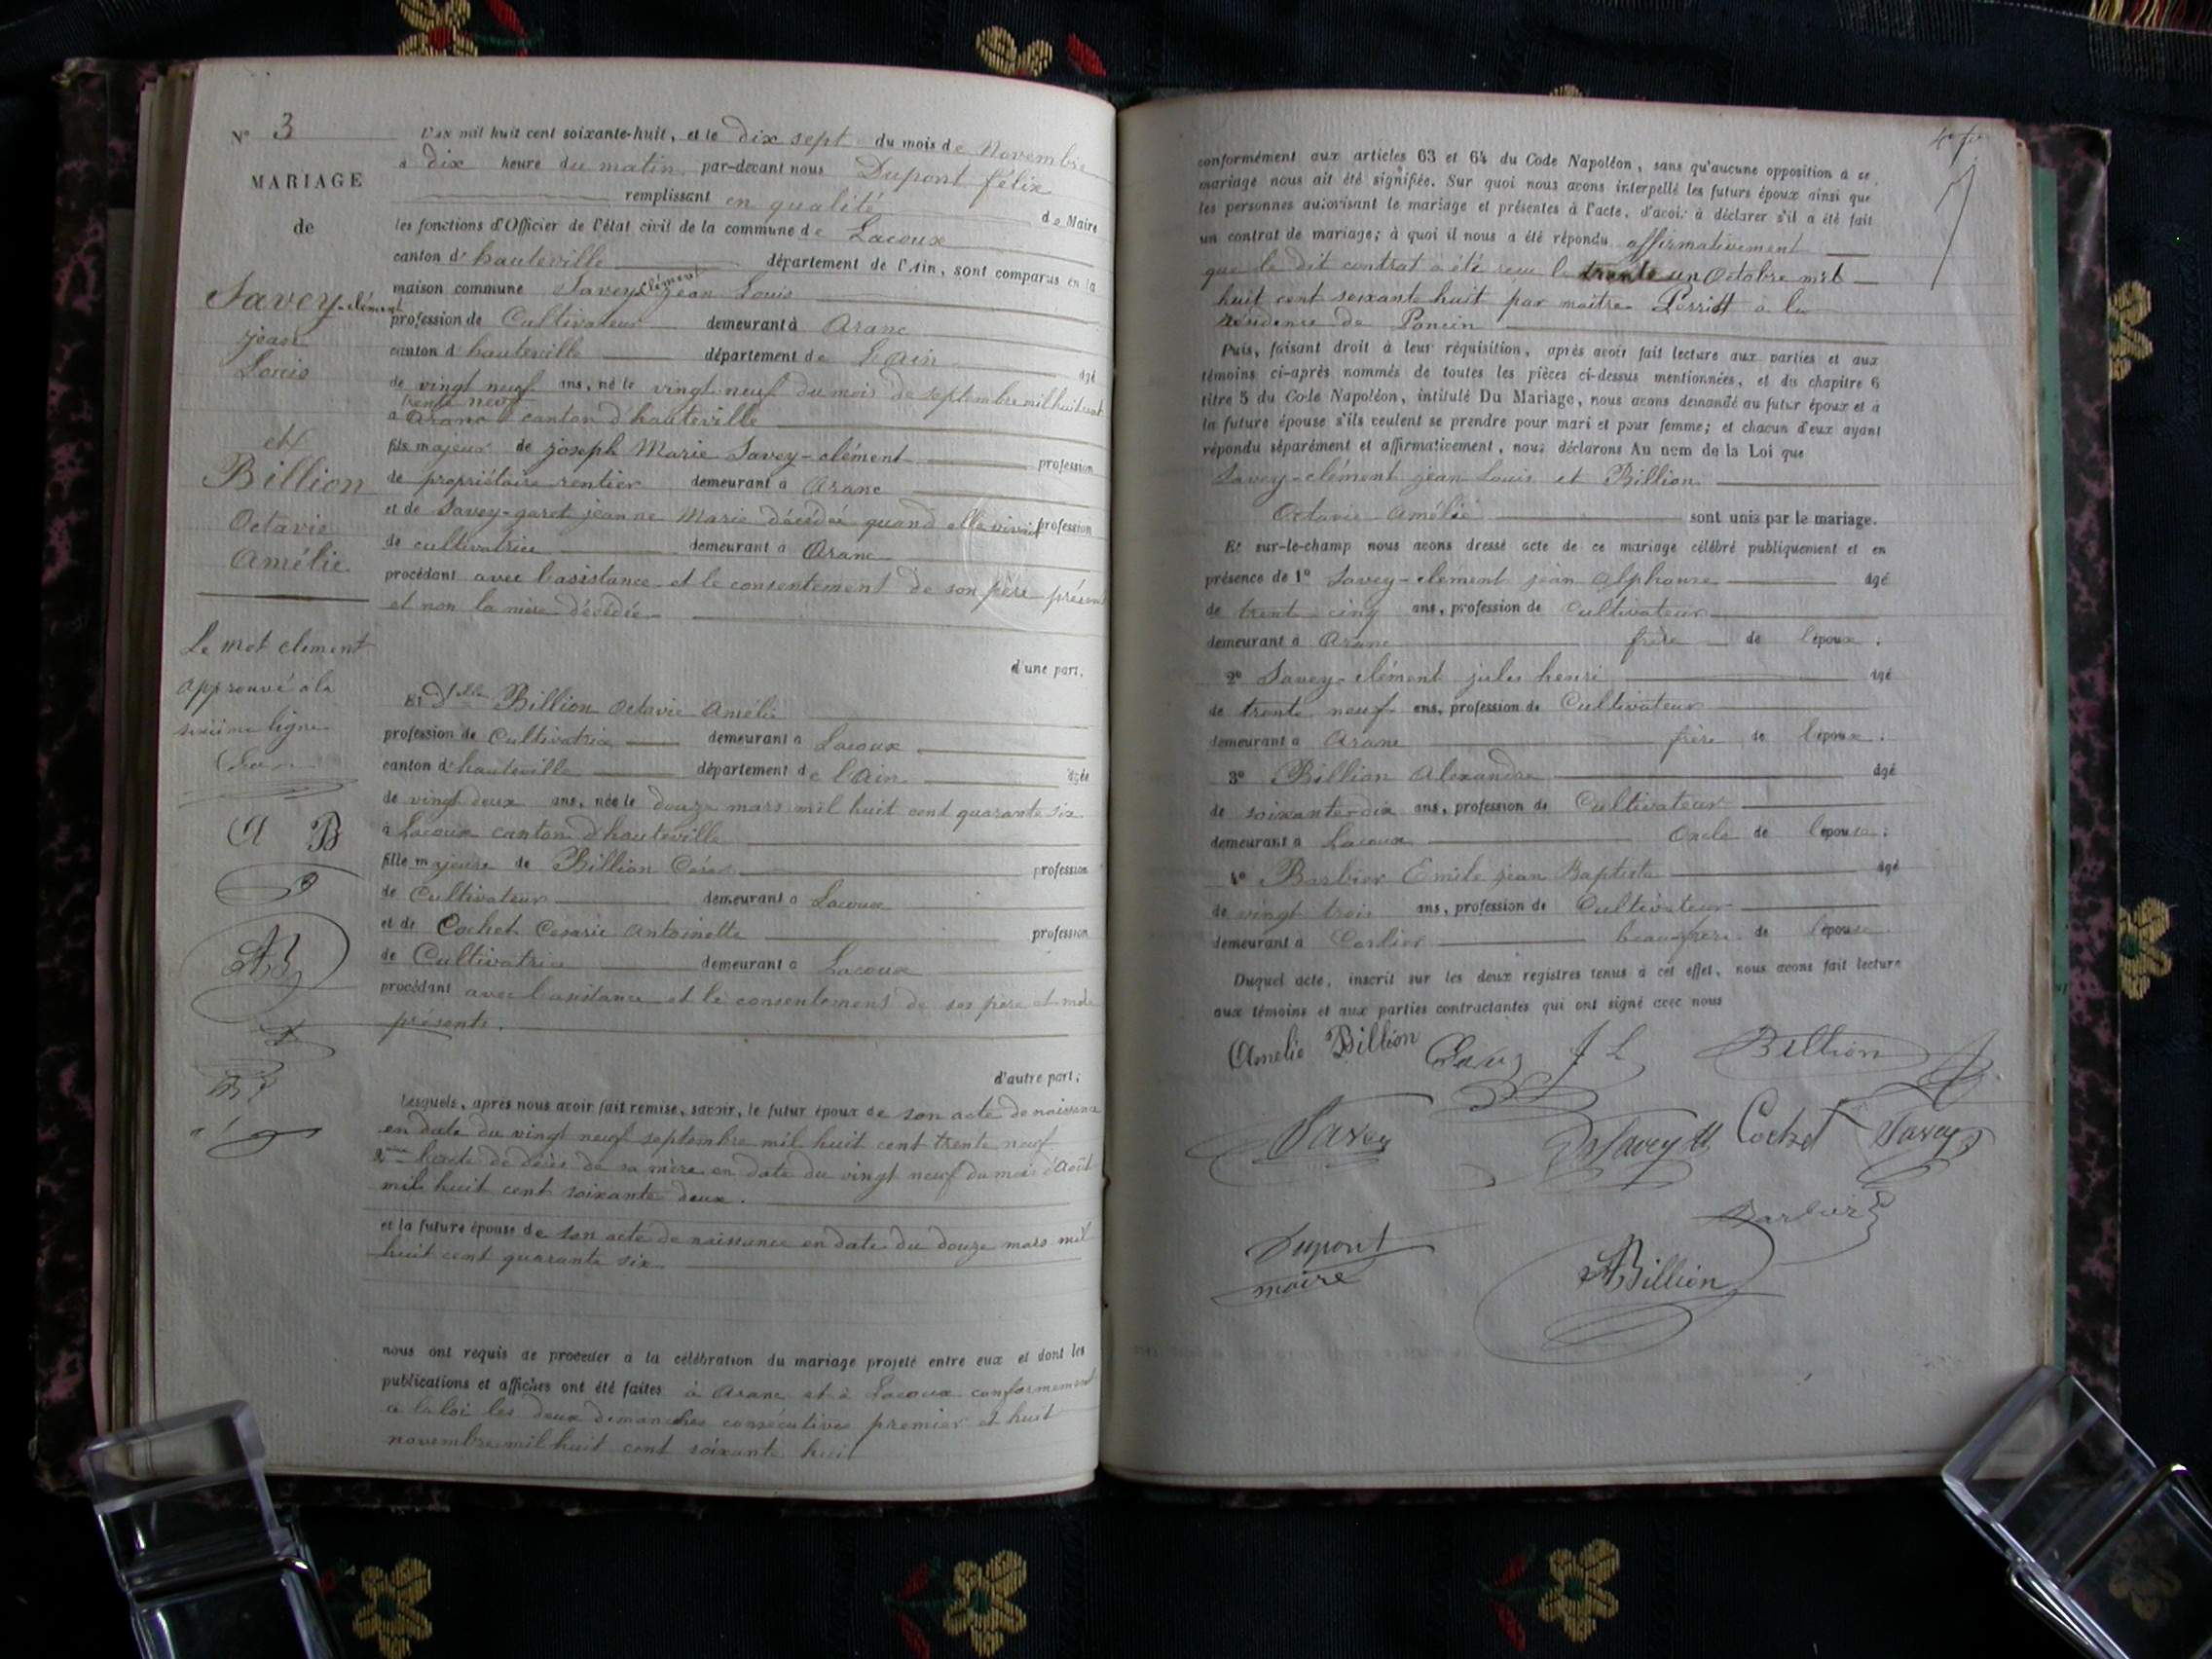 N° 3
MARIAGE
de
Savey-clément
jean
Louis
et
Billion
Octavie
Amélie
Le mot clement
approuvé à la
sixième ligne
A B
AB
L'an mil huit cent soixante-huit, et le dix sept du mois de Novembre
à dix heure du matin, par-devant nous Dupont félix
remplissant en qualité de Maire
les fonctions d'Officier de l'état civil de la commune de Lacoux
canton d'hauteville département de l'Ain, sont comparus en la
maison commune Savey clément jean Louis
profession de Cultivateur demeurant à Aranc
canton d'hauteville département de L'ain âgé
de vingt neuf ans, né le vingt neuf du mois de septembre mil huit cent
trente neuf
à Aranc canton d'hauteville
fils majeur de joseph Marie Savey-clément profession
de propriétaire rentier demeurant à Aranc
et de Savey-garet jeanne Marie décédée quand elle vivait profession
de cultivatrice demeurant à Aranc
procédant avec l'asistance et le consentement de son père présent
et non la mère décédée
d'une part,
Et Billion octavie Amélie
profession de Cultivatrice demeurant à Lacoux
canton d'hauteville département de l'Ain âgée
de vingt deux ans, née le douze mars mil huit cent quarante six
à Lacoux canton d'hauteville
fille majeure de Billion César profession
de Cultivateur demeurant à Lacoux
et de Cochet Césarie Antoinette profession
de Cultivatrice demeurant à Lacoux
procédant avec l'assistance et le consentement de ses père et mère
présents.
d'autre part;
Lesquels, après nous avoir fait remise, savoir, le futur époux de son acte de naissance
en date du vingt neuf septembre mil huit cent trente neuf
2me l'acte de décès de sa mère en date du vingt neuf du mois d'Août
mil huit cent soixante deux.
et la future épouse de son acte de naissance en date du douze mars mil
huit cent quarante six
nous ont requis de procéder à la célébration du mariage projeté entre eux et dont les
publications et affiches ont été faites à Aranc et à Lacoux conformement
à la loi les deux dimanches consécutives premier et huit
novembre mil huit cent soixante huit
conformément aux articles 63 et 64 du Code Napoléon, sans qu'aucune opposition à ce
mariage nous ait été signifiée. Sur quoi nous avons interpellé les futurs époux ainsi que
les personnes autorisant le mariage et présentes à l'acte, d'avoir à déclarer s'il a été fait
un contrat de mariage; à quoi il nous a été répondu affirmativement
que le dit contrat a été recu le trente un Octobre mil
huit cent soixante huit par maître à la
résidence de Poncin
Puis, faisant droit à leur réquisition, après avoir fait lecture aux parties et aux
témoins ci-après nommés de toutes les pièces ci-dessus mentionnées, et du chapitre 6
titre 5 du Code Napoléon, intitulé Du Mariage, nous avons demandé au futur époux et à
la future épouse s'ils veulent se prendre pour mari et pour femme; et chacun d'eux ayant
répondu séparément et affirmativement, nous déclarons Au nom de la Loi que
Savey-clément jean Louis et Billion
Octavie Amélie sont unis par le mariage.
Et sur-le-champ nous avons dressé acte de ce mariage célébré publiquement et en
présence de 1° Savey-clément jean Alphonse âgé
de trent cinq ans, profession de Cultivateur
demeurant à Aranc frère de l'époux;
2° Savey-clément jules henri âgé
de trente neuf ans, profession de Cultivateur
demeurant à Aranc frère de l'époux;
3° Billion Alexandre âgé
de soixante-dix ans, profession de Cultivateur
demeurant à Lacoux Oncle de l'épouse;
4° Barbier Emile jean Baptiste âgé
de vingt trois ans, profession de Cultivateur
demeurant à Corlier beau frère de l'épouse
Duquel acte, inscrit sur les deux registres tenus à cet effet, nous avons fait lecture
aux témoins et aux parties contractantes qui ont signé avec nous
Amelie Billion Savey J L Billion
Savey Savey Cochet Savey
Barbier E
Dupont
maire
ABillion